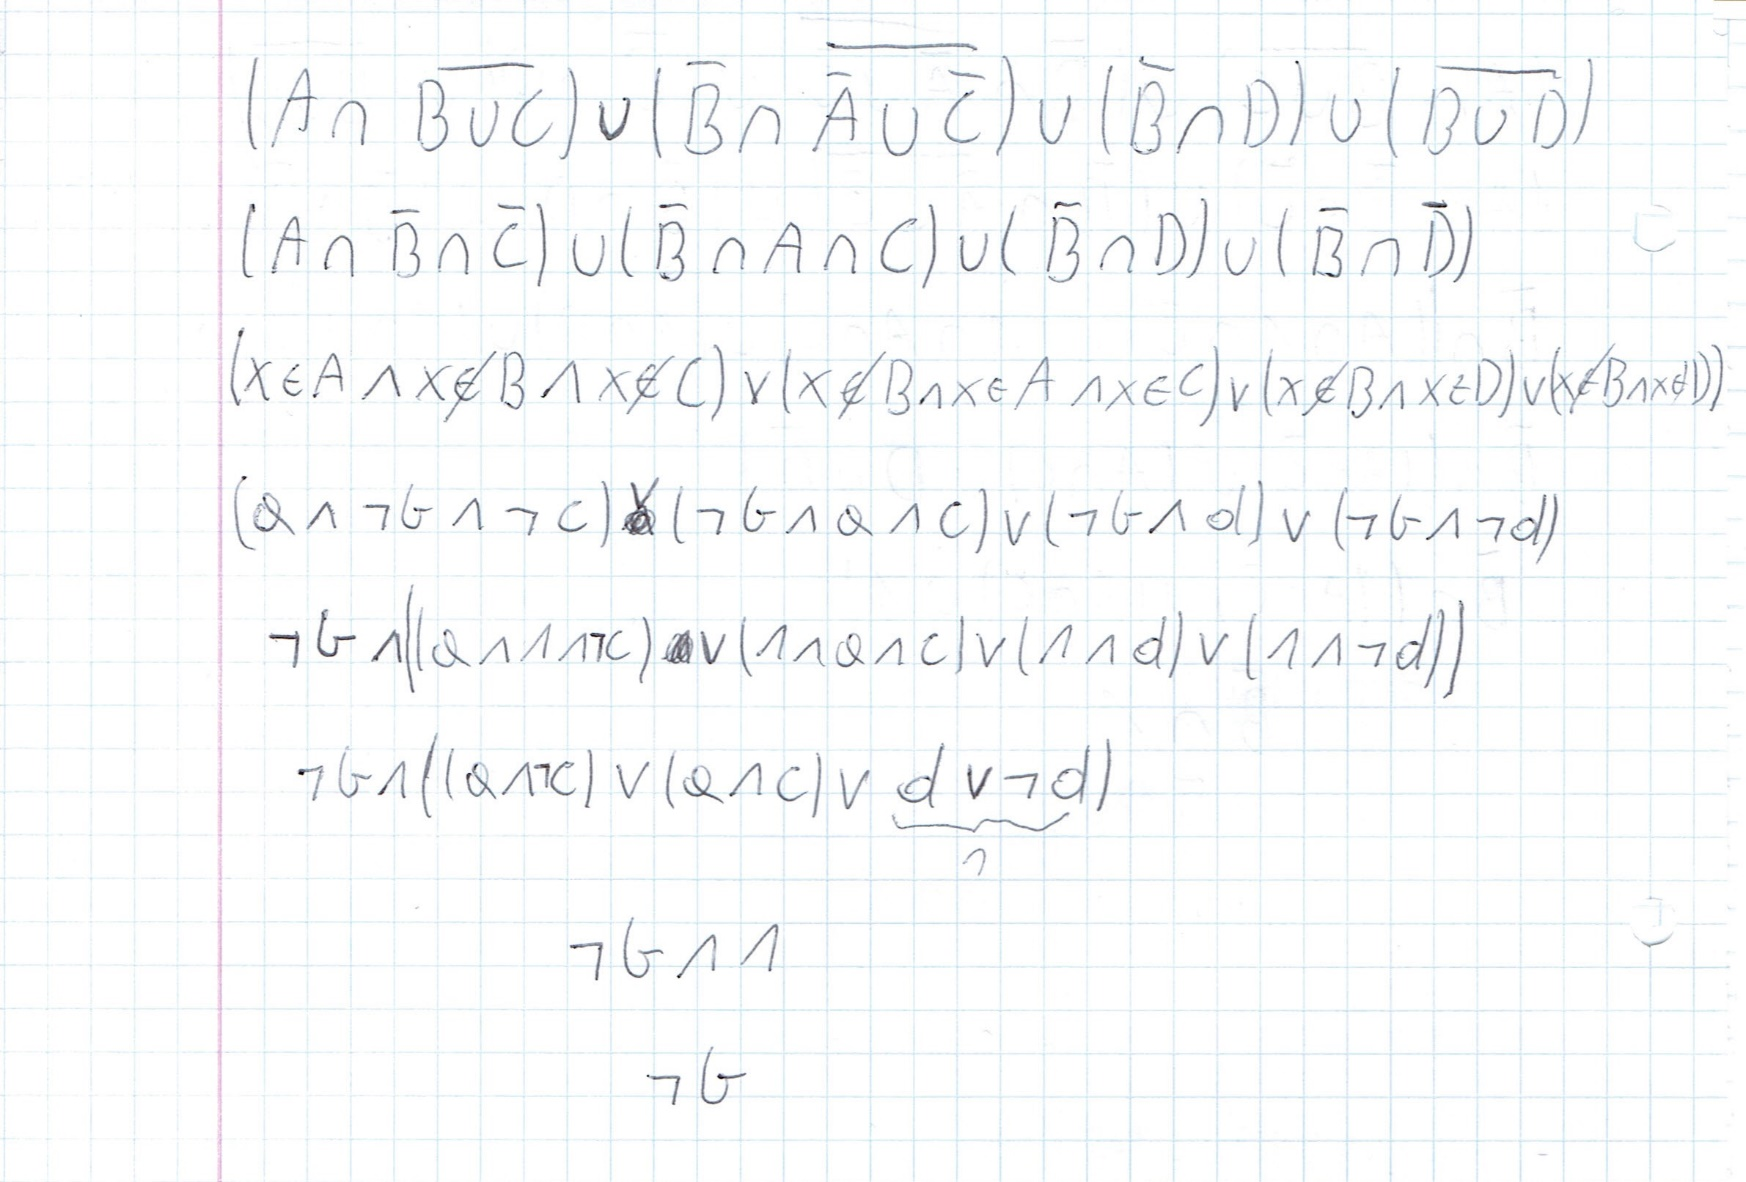 (A ∩ B̅ ̅∪̅ ̅C̅) ∪ (B̅ ∩ \overline{A̅ ∪ C̅}) ∪ (B̅ ∩ D) ∪ (\overline{B ∪ D})
(A ∩ B̅ ∩ C̅) ∪ (B̅ ∩ A ∩ C) ∪ (B̅ ∩ D) ∪ (B̅ ∩ D̅)
(x∈A ∧ x∉B ∧ x∉C) ∨ (x∉B ∧ x∈A ∧ x∈C) ∨ (x∉B ∧ x∈D) ∨ (x∉B ∧ x∉D)
(a ∧ ¬b ∧ ¬c) ∨ (¬b ∧ a ∧ c) ∨ (¬b ∧ d) ∨ (¬b ∧ ¬d)
¬b ∧ ((a ∧ 1 ∧ ¬c) ∨ (1 ∧ a ∧ c) ∨ (1 ∧ d) ∨ (1 ∧ ¬d))
¬b ∧ ((a ∧ ¬c) ∨ (a ∧ c) ∨ d ∨ ¬d)
1
¬b ∧ 1
¬b